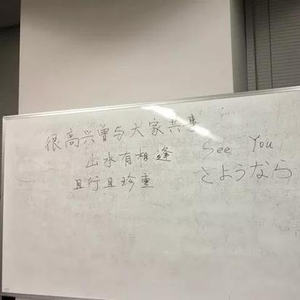 很高兴曾与大家共事
出水有相逢
且行且珍重
See You
さようなら